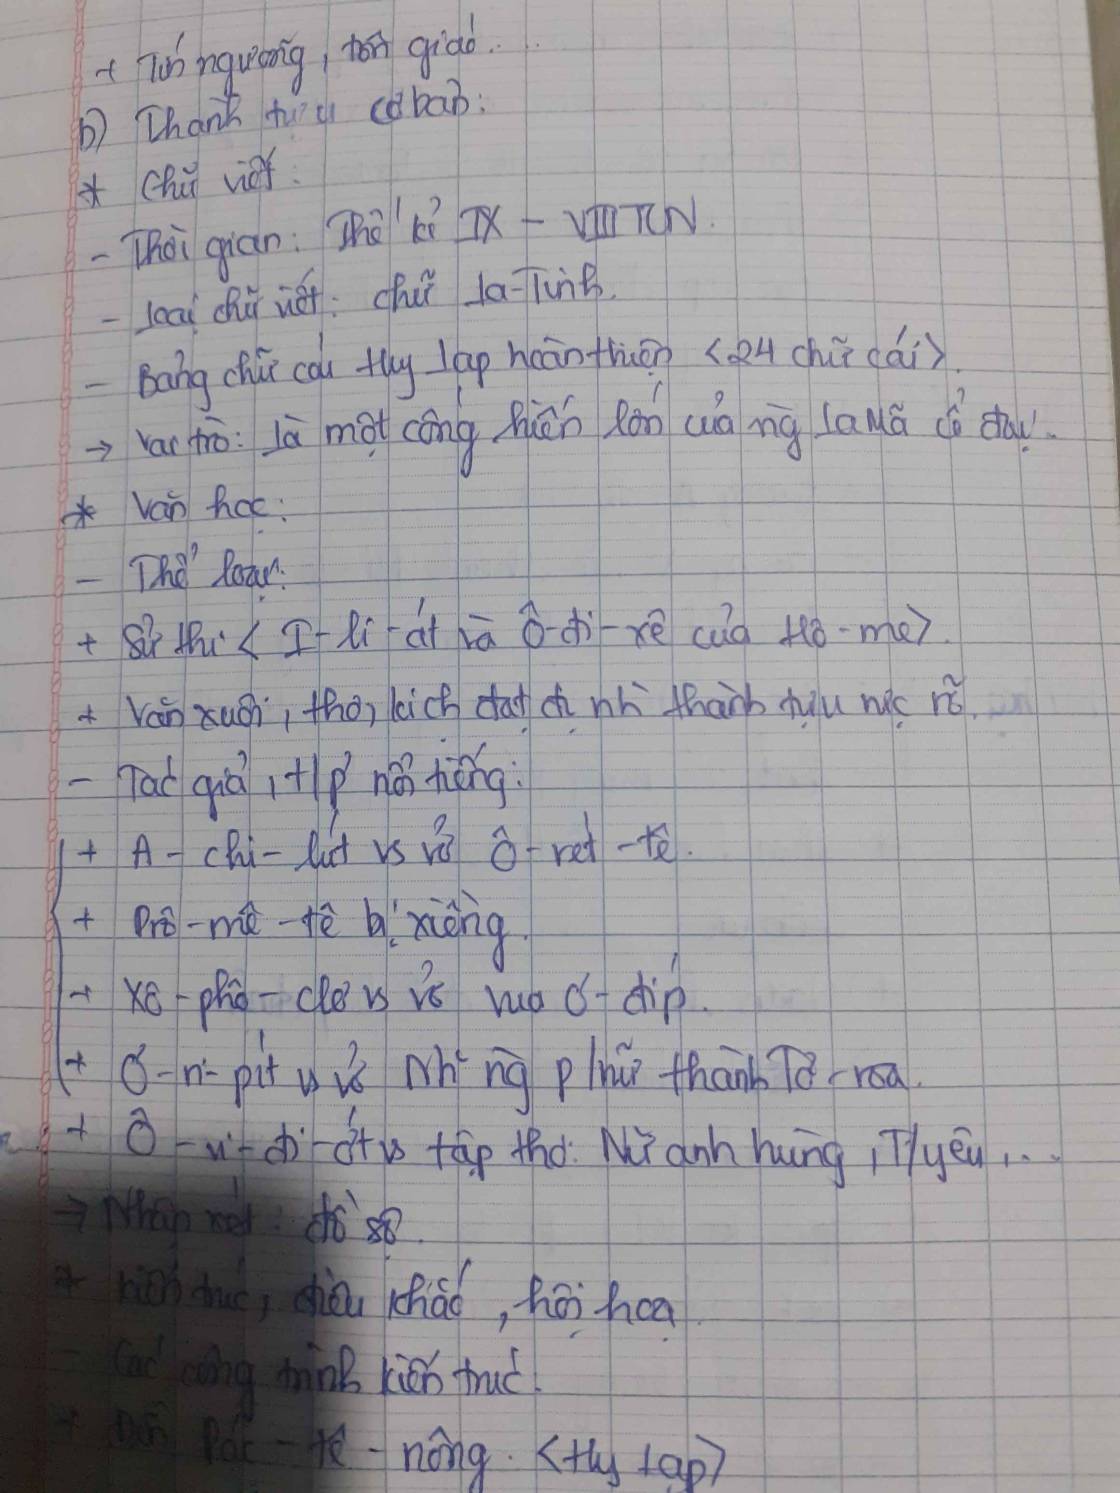 + Tín ngưỡng, tôn giáo...
b) Thành tựu cơ bản:
* Chữ viết:
- Thời gian: Thế kỉ IX - VIII TCN.
- Loại chữ viết: chữ La-Tinh.
- Bảng chữ cái Hy Lạp hoàn thiện <24 chữ cái>.
→ Vai trò: là một cống hiến lớn của ng La Mã cổ đại.
* Văn học:
- Thể loại:
+ Sử thi < I-li-át và Ô-đi-xê của Hô-me>.
+ Văn xuôi, thơ, kịch đạt đc nh` thành tựu rực rỡ.
- Tác giả, t/p nổi tiếng:
+ A - chi - lút vs vở Ô-rét-tê.
+ Prô-mê-tê bị xiềng.
+ Xô-phô-clơ vs vở vua Ơ-đíp.
+ Ơ-ri-pít vs vở Nh~ ng p/nữ thành Tơ-roa.
+ Ô-vi-đi-ớt vs tập thơ: Nữ anh hùng, T/yêu,...
→ Nhận xét: đồ sộ.
* Kiến trúc, điêu khắc, hội họa
- Các công trình kiến trúc.
+ Đền Pác-tê-nông. <Hy Lạp>